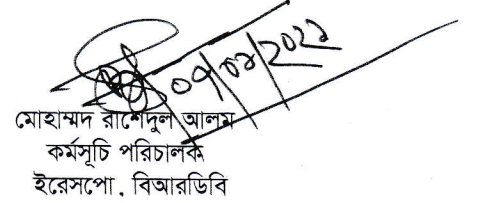 ০৭/০২/২০২২
মোহাম্মদ রাশেদুল আলম
কর্মসূচি পরিচালক
ইরেসপো, বিআরডিবি